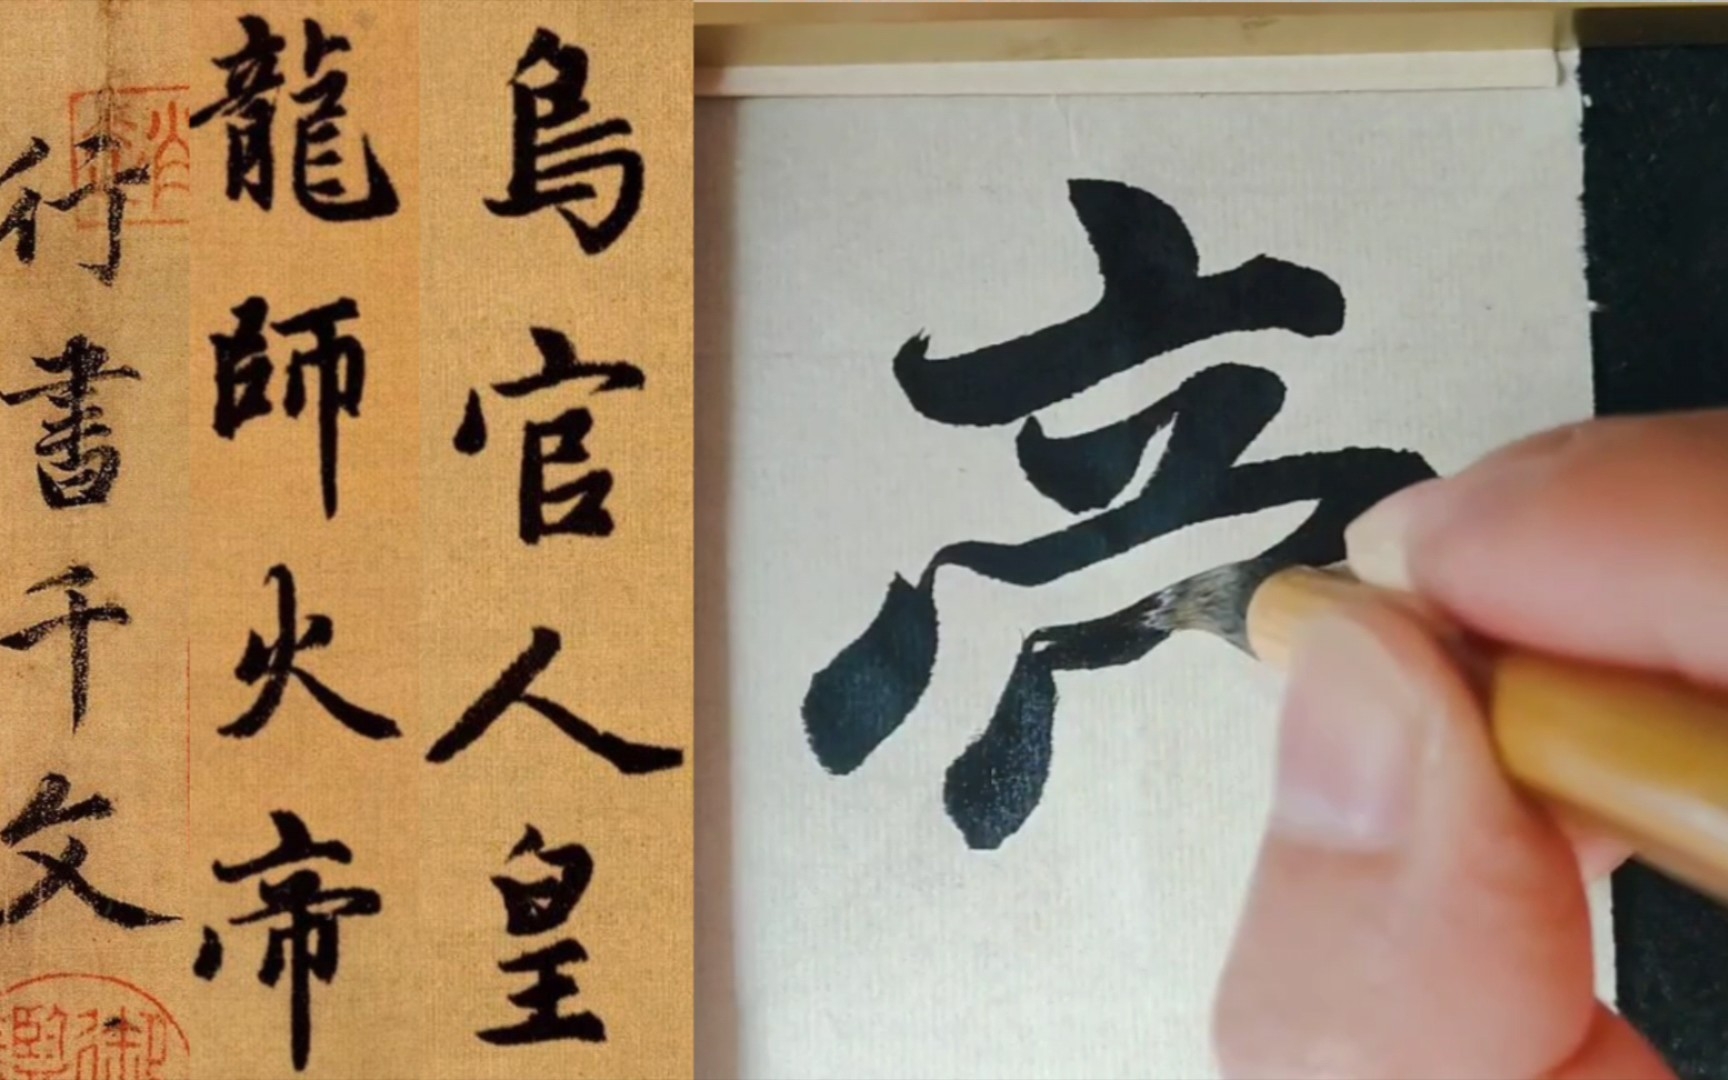 行書千文
龍師火帝
鳥官人皇